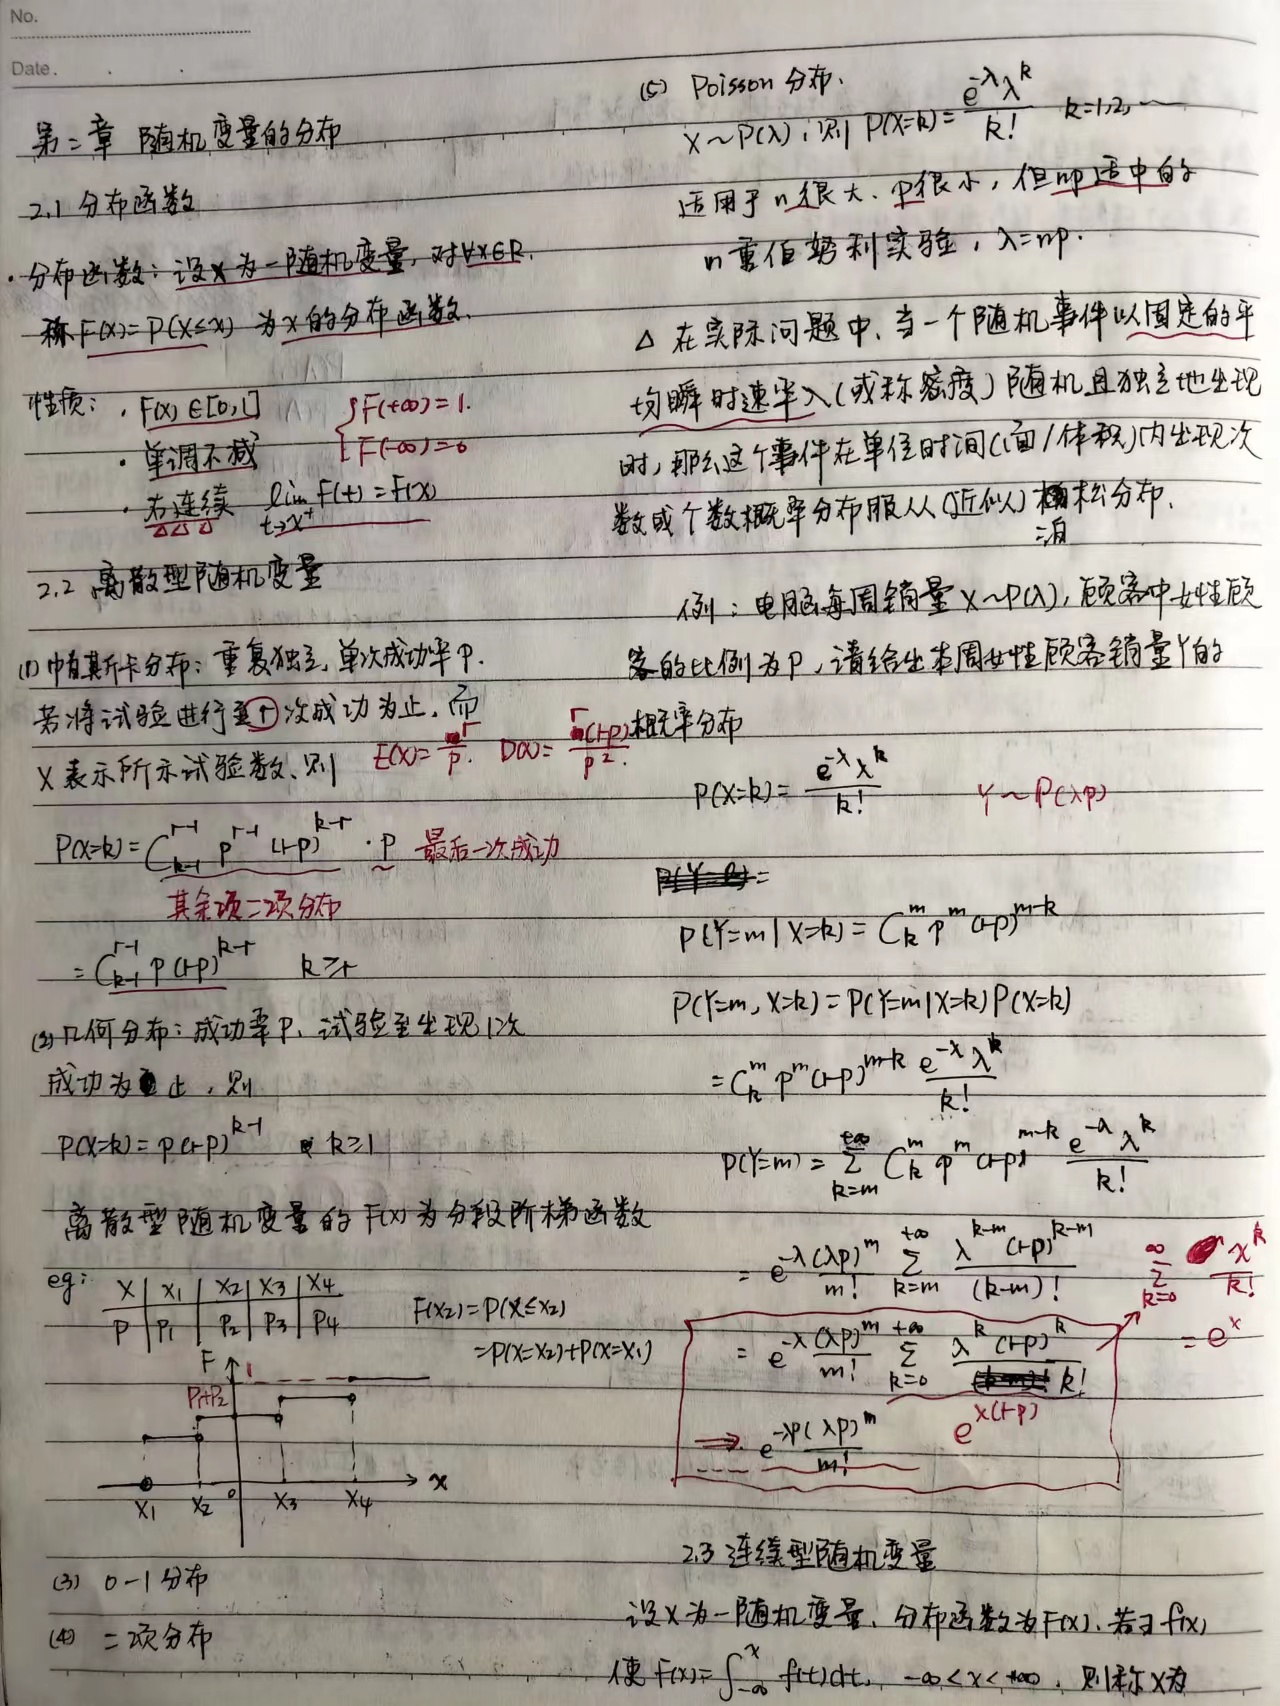 No.
Date.
第二章 随机变量的分布
2.1 分布函数
· 分布函数：设X为一随机变量，对∀x∈R，
称 F(x)=P(X≤x) 为X的分布函数.
性质： · F(x)∈[0,1] { F(+∞)=1. F(-∞)=0
· 单调不减
· 右连续 lim_{t→x⁺} F(t)=F(x)
2.2 离散型随机变量
(1) 帕斯卡分布：重复独立，单次成功率P.
若将试验进行至 r 次成功为止，而
X表示所示试验数，则 E(X)= r/p. D(X)= r(1-p)/p².
P(X=k)= C_{k-1}^{r-1} p^{r-1} (1-p)^{k-r} · p 最后一次成功
其余项二项分布
= C_{k-1}^{r-1} p (1-p)^{k-r} k≥r
(2) 几何分布：成功率P，试验至出现1次
成功为止，则
P(X=k)= p(1-p)^{k-1} k≥1
离散型随机变量的F(x)为分段阶梯函数
eg： X | x₁ | x₂ | x₃ | x₄
P | P₁ | P₂ | P₃ | P₄
F(x₂)=P(X≤x₂)
=P(X=x₂)+P(X=x₁)
F 1
P₁+P₂
x
x₁ x₂ 0 x₃ x₄
(3) 0-1分布
(4) 二项分布
(5) Poisson 分布.
X~P(λ)，则 P(X=k)= e^{-λ}λ^k / k! k=1,2, ⋯
适用于 n 很大、p很小，但np适中的
n重伯努利实验，λ=np.
△ 在实际问题中，当一个随机事件以固定的平
均瞬时速率λ(或称密度)随机且独立地出现
时，那么这个事件在单位时间(面/体积)内出现次
数或个数概率分布服从(近似)泊松分布.
例：电脑每周销量X~P(λ)，顾客中女性顾
客的比例为P，请给出本周女性顾客销量Y的
概率分布
P(X=k)= e^{-λ}λ^k / k! Y~P(λp)
P(Y=k)=
P(Y=m|X=k)= C_k^m p^m (1-p)^{m-k}
P(Y=m, X=k)=P(Y=m|X=k)P(X=k)
= C_k^m p^m (1-p)^{m-k} e^{-λ}λ^k / k!
P(Y=m)= Σ_{k=m}^{+∞} C_k^m p^m (1-p)^{m-k} e^{-λ}λ^k / k!
= e^{-λ} (λp)^m / m! Σ_{k=m}^{+∞} λ^{k-m}(1-p)^{k-m} / (k-m)! Σ_{k=0}^{∞} x^k / k!
= e^{-λ} (λp)^m / m! Σ_{k=0}^{+∞} λ^k (1-p)^k / k! = e^x
e^{λ(1-p)}
⇒ e^{-λp} (λp)^m / m!
2.3 连续型随机变量
设X为一随机变量，分布函数为F(x)，若∃ f(x)
使 F(x)=∫_{-∞}^{x} f(t)dt， -∞<x<+∞，则称X为